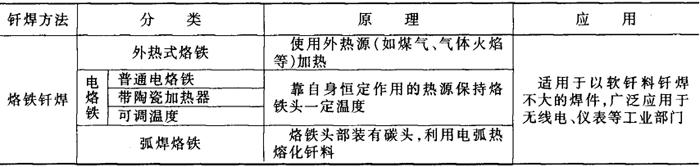 钎焊方法 分 类 原 理 应 用
烙铁钎焊
外热式烙铁
使用外热源(如煤气、气体火焰
等)加热
电烙铁
普通电烙铁
带陶瓷加热器
可调温度
靠自身恒定作用的热源保持烙
铁头一定温度
弧焊烙铁
烙铁头部装有碳头,利用电弧热
熔化钎料
适用于以软钎料钎焊
不大的焊件,广泛应用于
无线电、仪表等工业部门